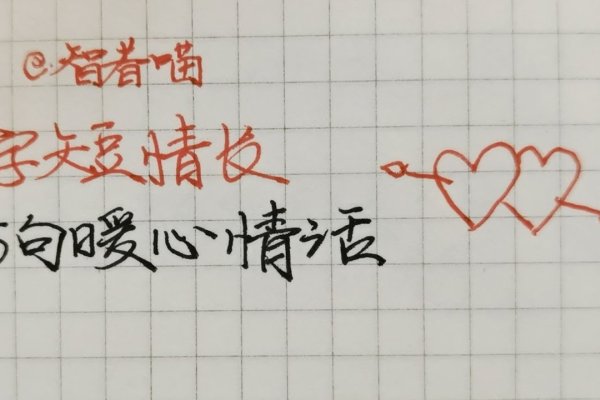 @智者喵
字短情长
句暖心情话